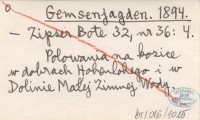 Gemsenjagden. 1894.
– Zipser Bote 32, nr 36: 4.
Polowania na kozice
w dobrach Hohenlohego i w
Dolinie Małej Zimnej Wody.
br/016/1025